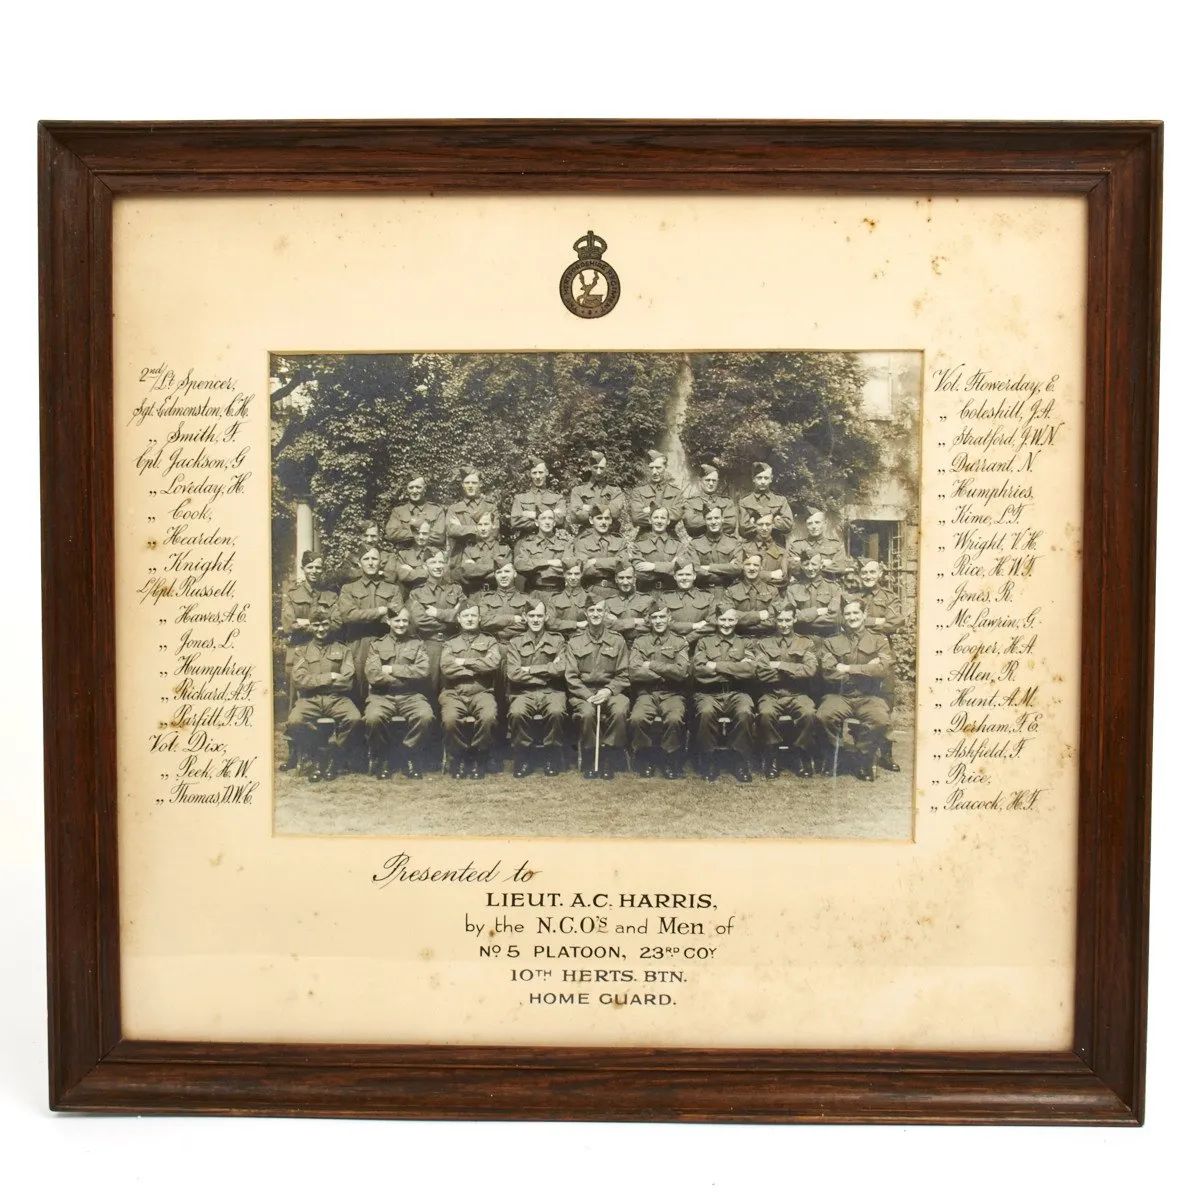 THE HERTFORDSHIRE REGIMENT
2nd/Lt Spencer,
Sgt. Edmonston, C.H.
„ Smith, F.
Cpl. Jackson, G
„ Loveday, H.
„ Cook,
„ Hearden,
„ Knight,
L/Cpl. Russell,
„ Hawes, A.E.
„ Jones, L.
„ Humphrey,
„ Rickard, A.F.
„ Parfitt, F.R.
Vol. Dix,
„ Peek, H.W.
„ Thomas, D.W.C.
Vol. Flowerday, E.
„ Coleshill, J.A.
„ Stratford, J.W.N.
„ Durrant, N.
„ Humphries,
„ Kime, L.F.
„ Wright, V.H.
„ Rice, H.W.F.
„ Jones, R.
„ Mc Lawrin, G.
„ Cooper, H.A.
„ Allen, R.
„ Hunt, A.M.
„ Derham, F.E.
„ Ashfield, F.
„ Price,
„ Peacock, H.F.
Presented to
LIEUT. A.C. HARRIS,
by the N.C.O'S and Men of
No 5 PLATOON, 23RD COY
10TH HERTS. BTN.
HOME GUARD.